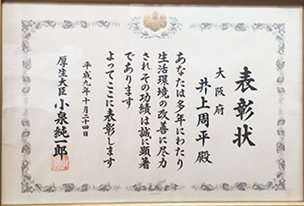 表彰状
大阪府
井上周平殿
あなたは多年にわたり
生活環境の改善に尽力
されその功績は誠に顕著
であります
よってここに表彰します
平成九年十月二十四日
厚生大臣 小泉純一郎